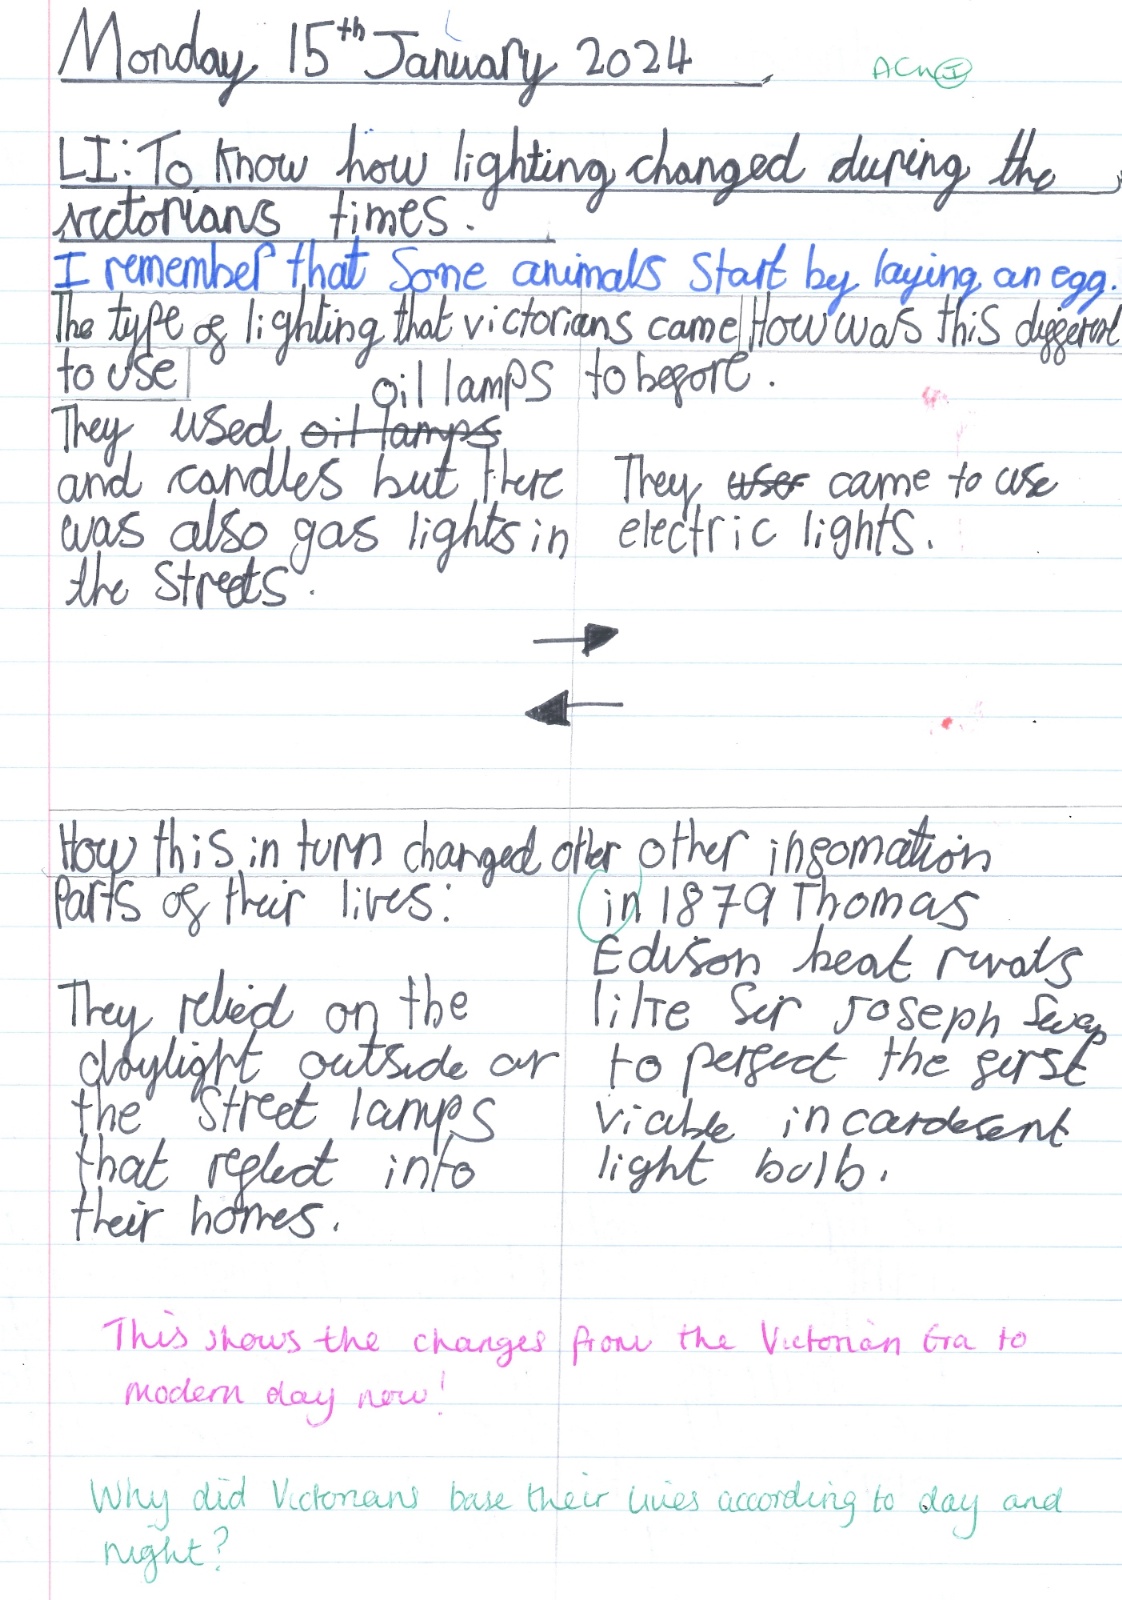 Monday 15th January 2024
ACH I
LI: To know how lighting changed during the
victorians times.
I remember that Some animals Start by laying an egg.
The type of lighting that victorians came
to use
How was this different
to before.
They used oil lamps oil lamps
and candles but there
was also gas lights in
the Streets.
They user came to use
electric lights.
How this in turn changed other
Parts of their lives:
They relied on the
daylight outside or
the Street lamps
that reflect into
their homes.
other infomation
in 1879 Thomas
Edison beat rivals
like Sir Joseph Swan
to perfect the first
viable incardesent
light bulb.
This shows the changes from the Victorian Era to
modern day now!
Why did Victorians base their lives according to day and
night?